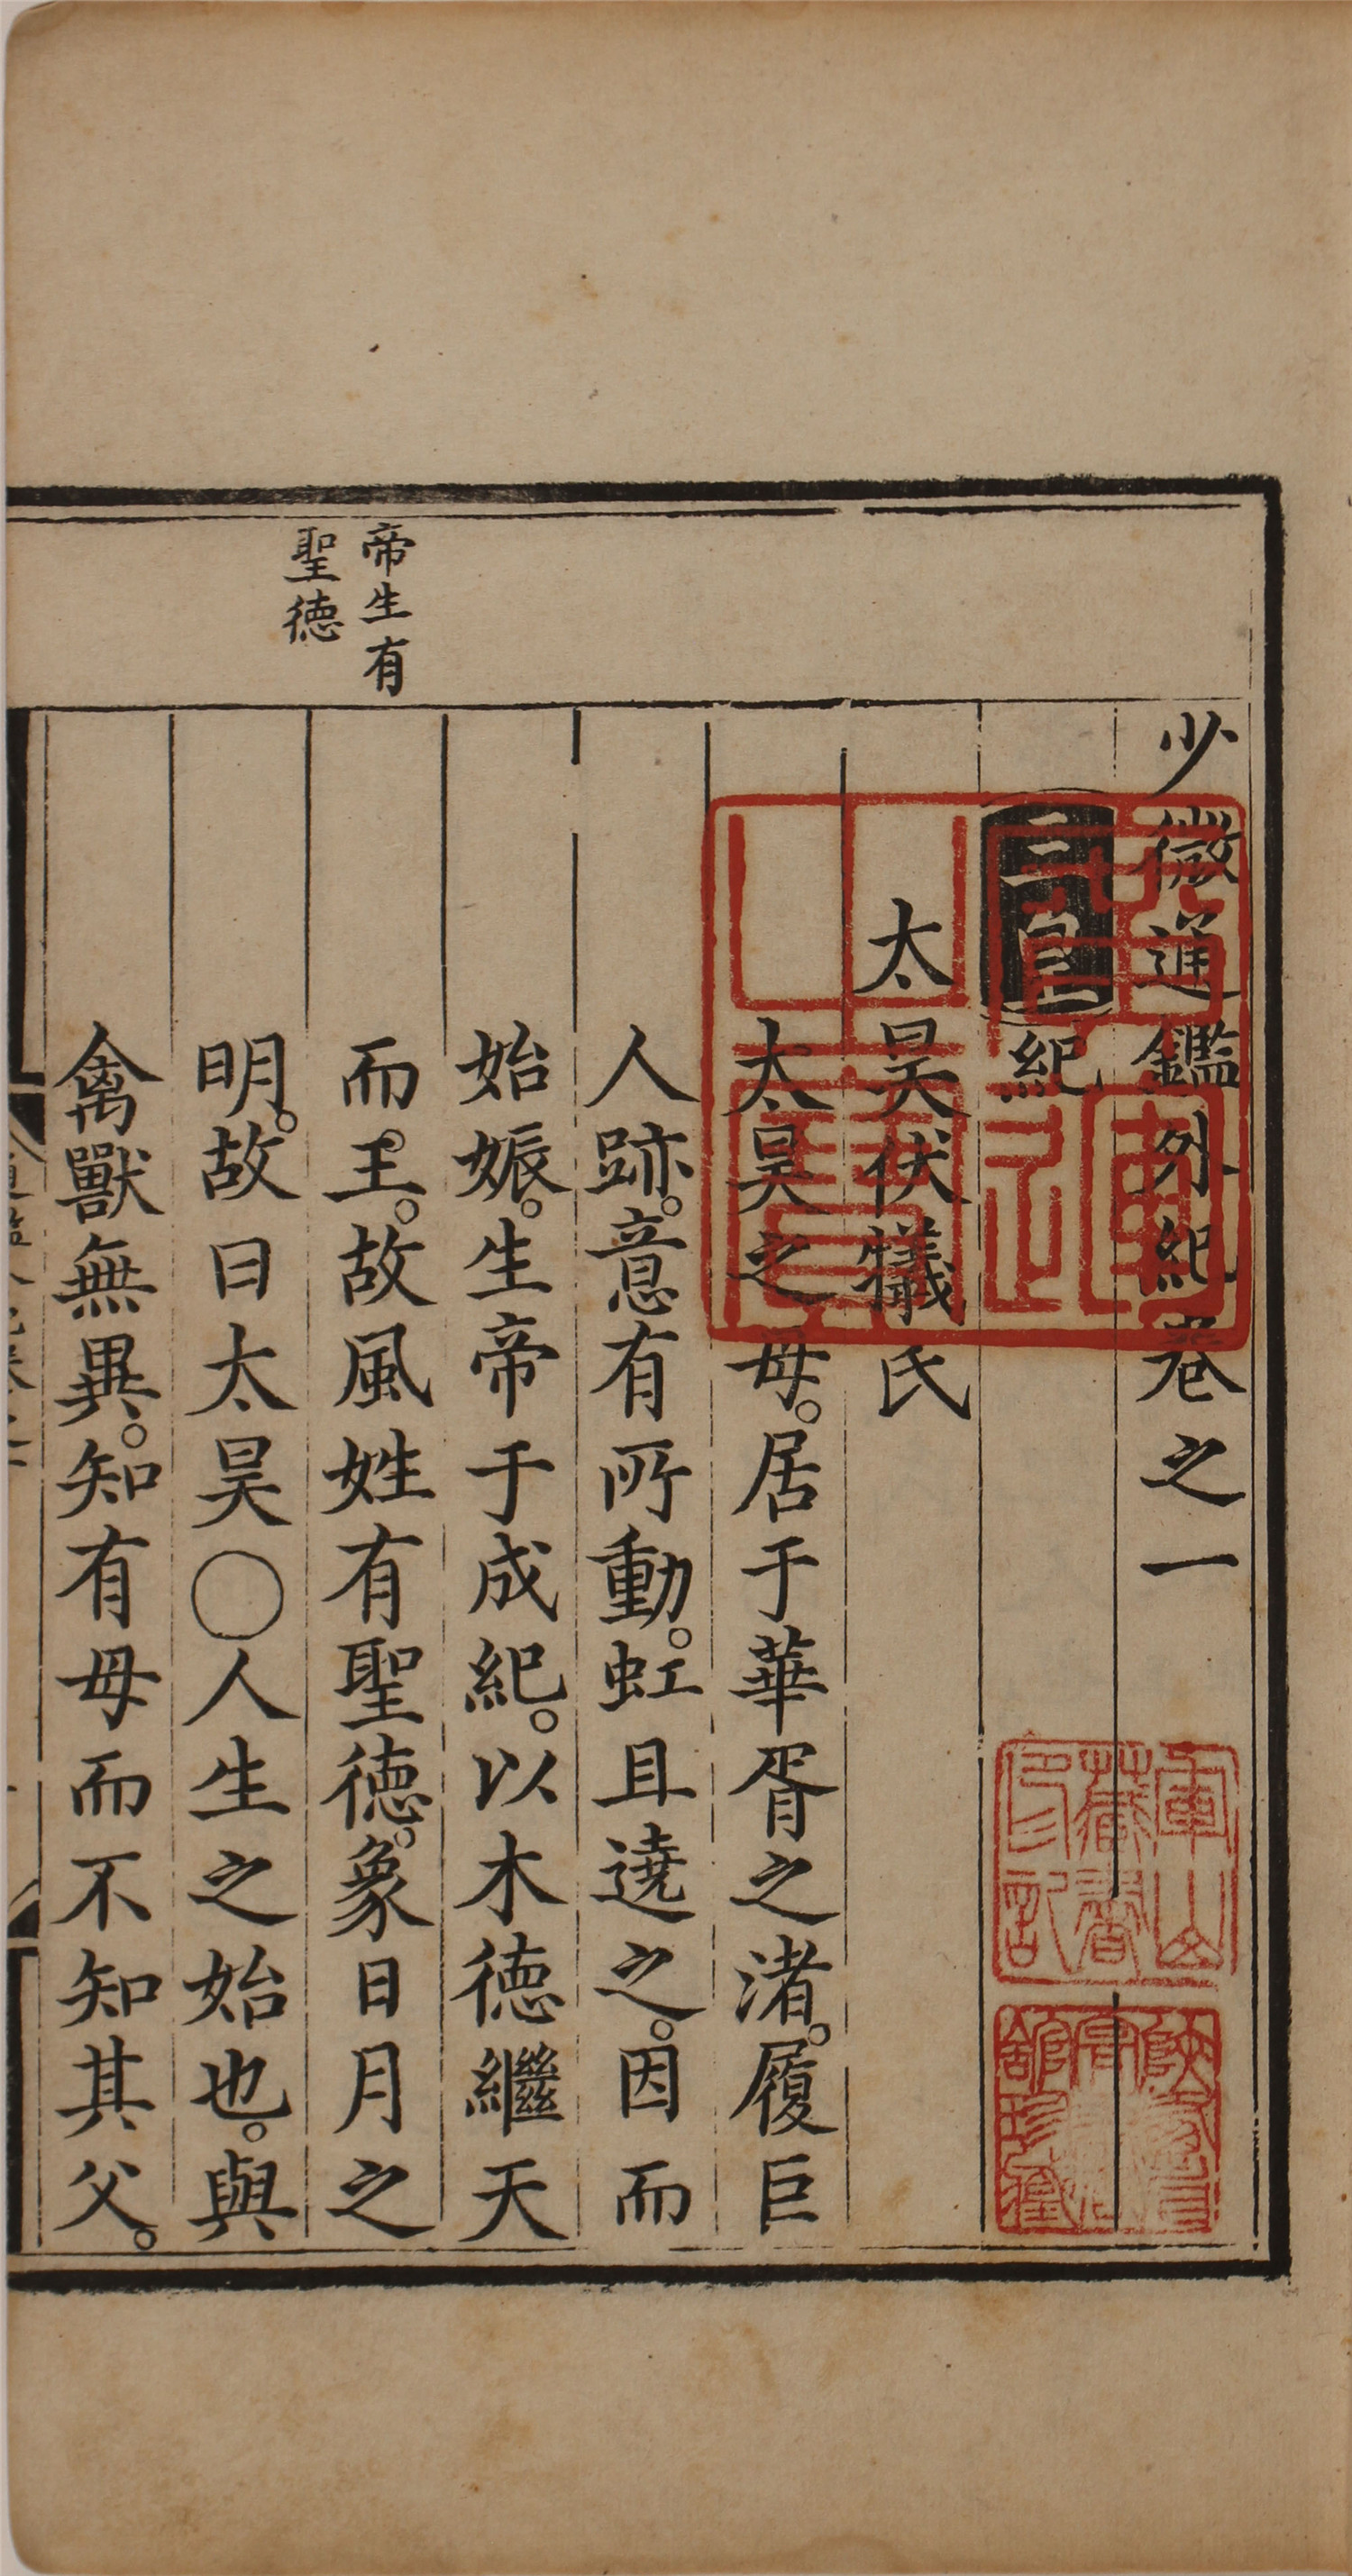 少微通鑑外紀卷之一
三皇紀
太昊伏犧氏
太昊之母。居于華胥之渚。履巨
人跡。意有所動。虹且遶之。因而
始娠。生帝于成紀。以木德繼天
而王。故風姓有聖德。象日月之
明。故曰太昊○人生之始也。與
禽獸無異。知有母而不知其父。
帝生有
聖德
軍山
藏書
印記